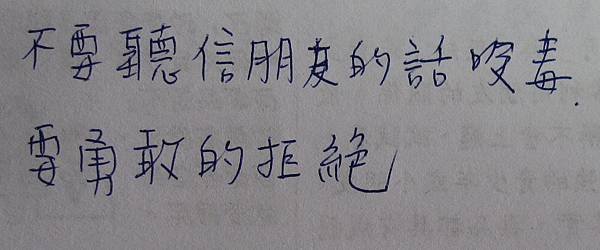 不要聽信朋友的話吸毒.
要勇敢的拒絕